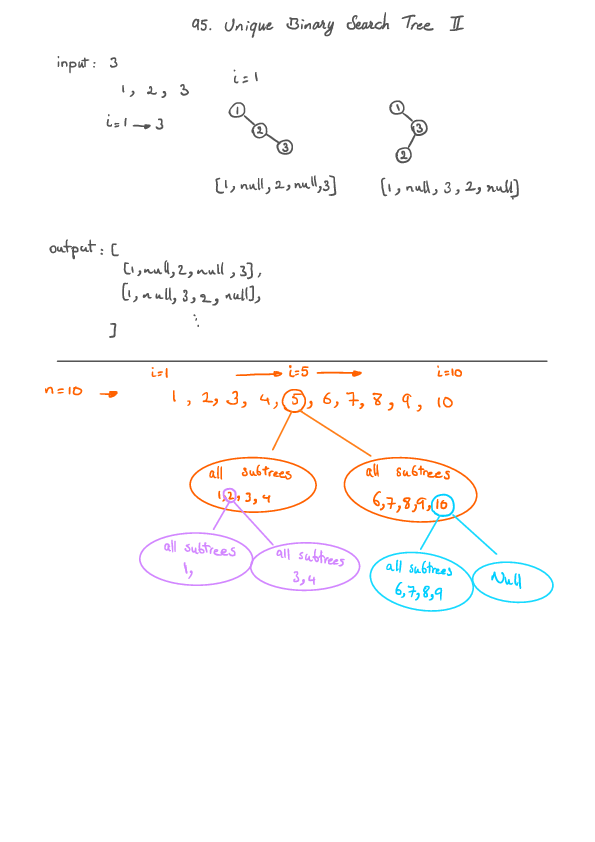 95. Unique Binary Search Tree II
input: 3
1, 2, 3
i=1 → 3
i=1
1
2
3
[1, null, 2, null, 3]
1
3
2
[1, null, 3, 2, null]
output: [
[1, null, 2, null, 3],
[1, null, 3, 2, null],
⋱
]
i=1 → i=5 → i=10
n=10 → 1, 2, 3, 4, 5, 6, 7, 8, 9, 10
all subtrees
1, 2, 3, 4
all subtrees
6, 7, 8, 9, 10
all subtrees
1,
all subtrees
3, 4
all subtrees
6, 7, 8, 9
Null